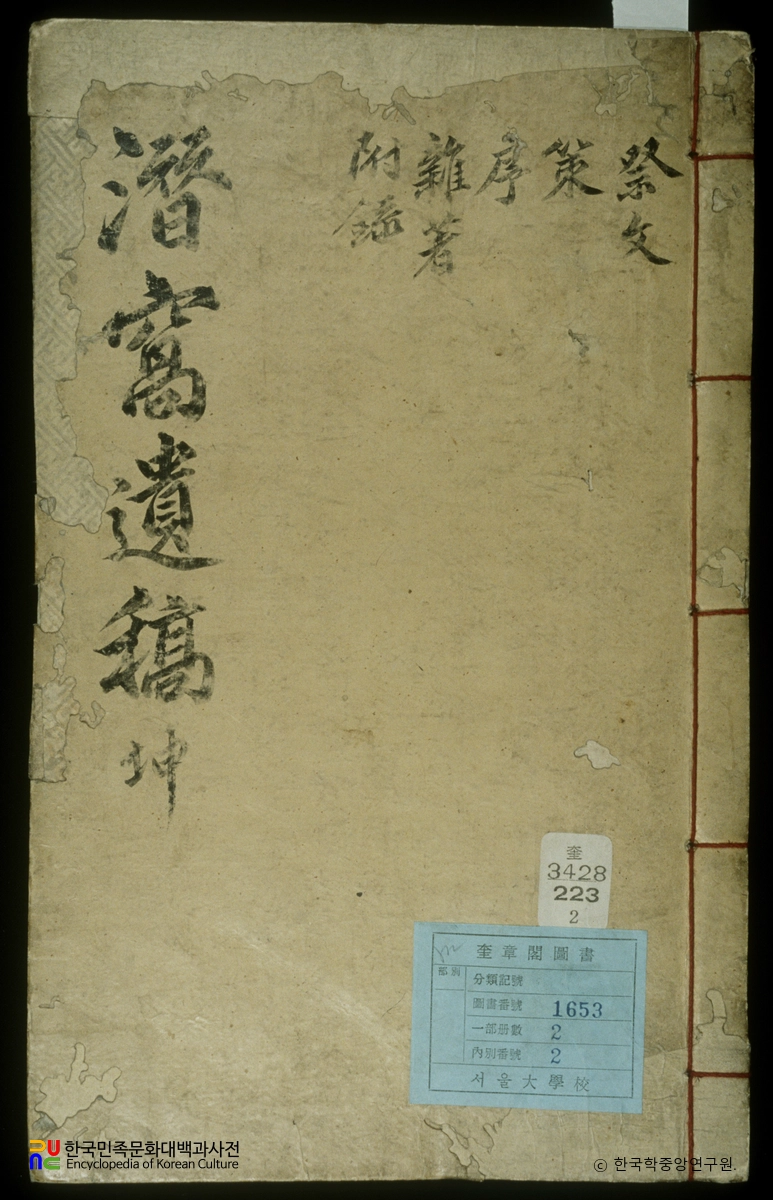 祭文
策
序
雜著
附錄
潛窩遺稿 坤
奎
3428
223
2
奎章閣圖書
部別
分類記號
圖書番號 1653
一部册數 2
內別番號 2
서울大學校
한국민족문화대백과사전
Encyclopedia of Korean Culture
© 한국학중앙연구원.